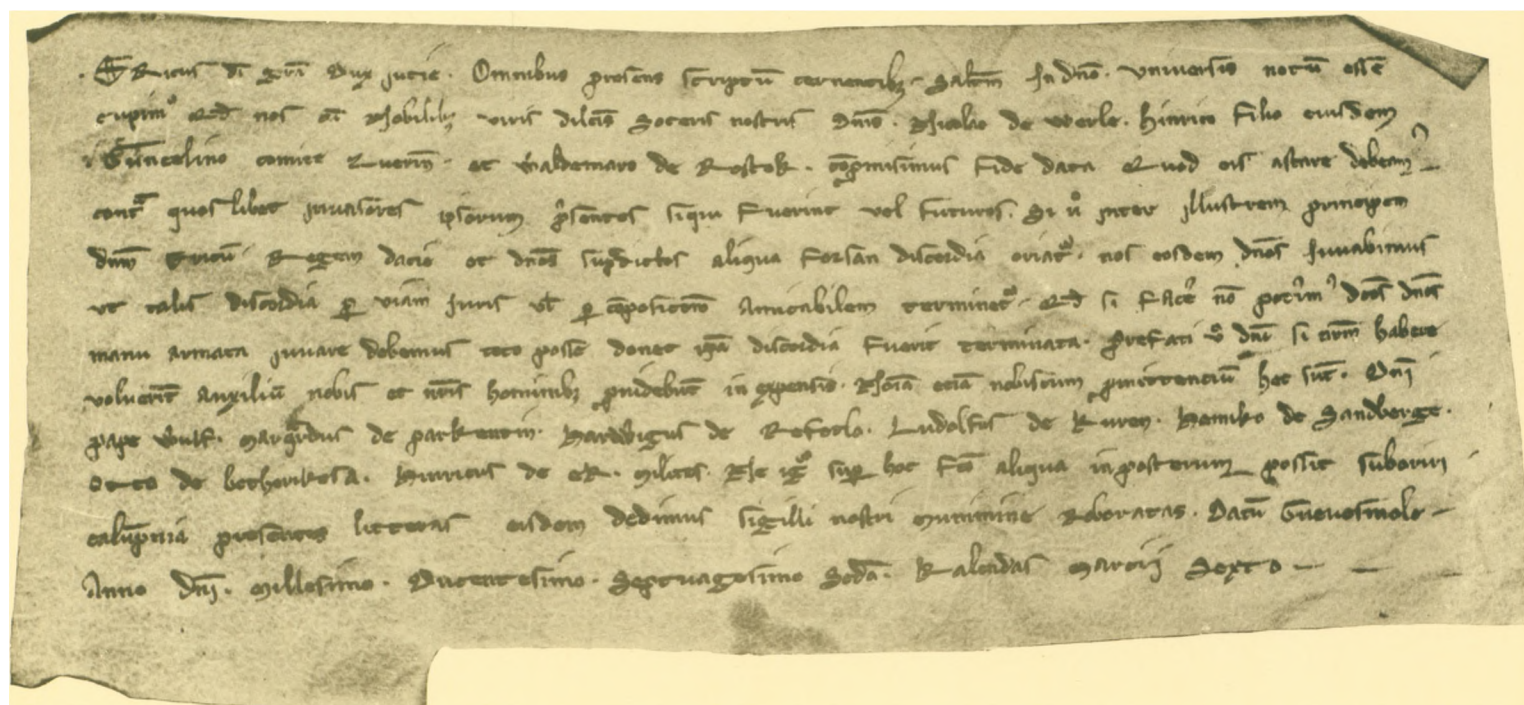 · ERicus di gra Dux jucie · Omnibus presens scriptū cernentibz · Saltm In dno · universis notū esse
cupim⁹ Qd nos cū Nobilibz viris dilcis Soceris nostris Dnis · Nicolao de werle · hinrico filio eiusdem
· Guncelino comite zuerin · et waldemaro de Rostok · cōpmisimus fide data Quod eis astare debeam⁹
contª quoslibet invasores ipsorum p̄sentes siqui fuerint vel futuros · Si ū inter illustrem principem
dnm Ericū Regem dacie et dnos sup̄dictos aliqua forsan discordia oriat² · nos eosdem dnos iuvabimus
ut talis discordia ꝑ viam iuris vl ꝑ cōpositōm Amicabilem terminet² · Qd si face nō potim⁹ dcos dnos
manu armata juvare debemus toto posse donec ip̄a discordia fuerit terminata · prefati v̊ dni si nrm habere
voluerīt Auxiliū nobis et nris hominibz pvidebūt in expensis · Noīa eciā nobiscum pmittenciū hec sūt · Dni
pape wulf · marqrdus de parkentin · hardwigus de Refetlo · Ludolfus de Kuren · Hemiko de Sandberge ·
Otto de bethorikesa · hinricus de eR · milites · Ne igᵒ sup̄ hoc fco aliqua inposterum possit suboriri
calūpnia presentes litteras eisdem dedimus sigilli nostri munimine Roboratas · Datū Gnevesmole –
Anno dni · millesimo · Ducentesimo · Septuagesimo Scdo · Kalendas marcii Sexto –